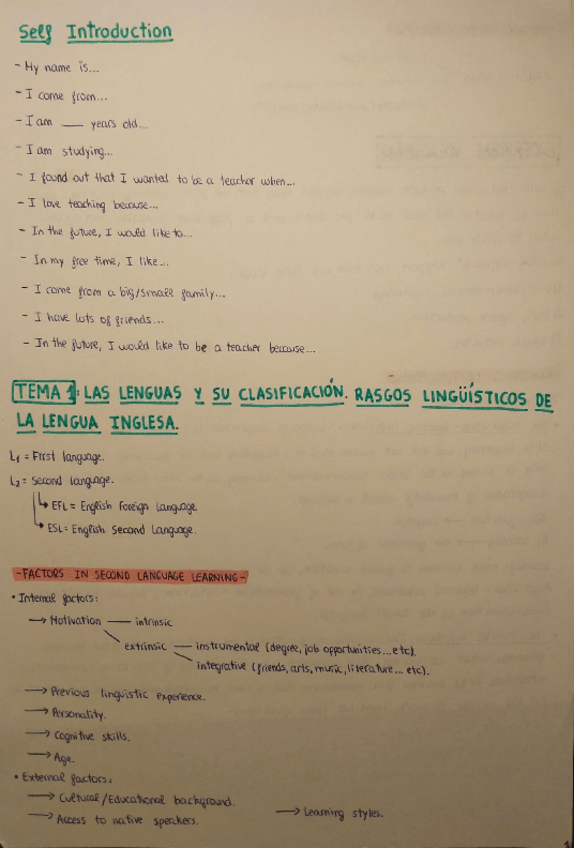 Self Introduction
- My name is...
- I come from...
- I am ___ years old...
- I am studying...
- I found out that I wanted to be a teacher when...
- I love teaching because...
- In the future, I would like to...
- In my free time, I like...
- I come from a big/small family...
- I have lots of friends...
- In the future, I would like to be a teacher because...
TEMA 1: LAS LENGUAS Y SU CLASIFICACIÓN. RASGOS LINGÜÍSTICOS DE
LA LENGUA INGLESA.
L1 = First language.
L2 = Second language.
↳ EFL = English Foreign Language
↳ ESL = English Second Language.
- FACTORS IN SECOND LANGUAGE LEARNING -
• Internal factors:
→ Motivation — intrinsic
extrinsic — instrumental (degree, job opportunities...etc).
integrative (friends, arts, music, literature... etc).
→ Previous linguistic experience.
→ Personality.
→ Cognitive skills.
→ Age.
• External factors:
→ Cultural/Educational background.
→ Access to native speakers. → Learning styles.